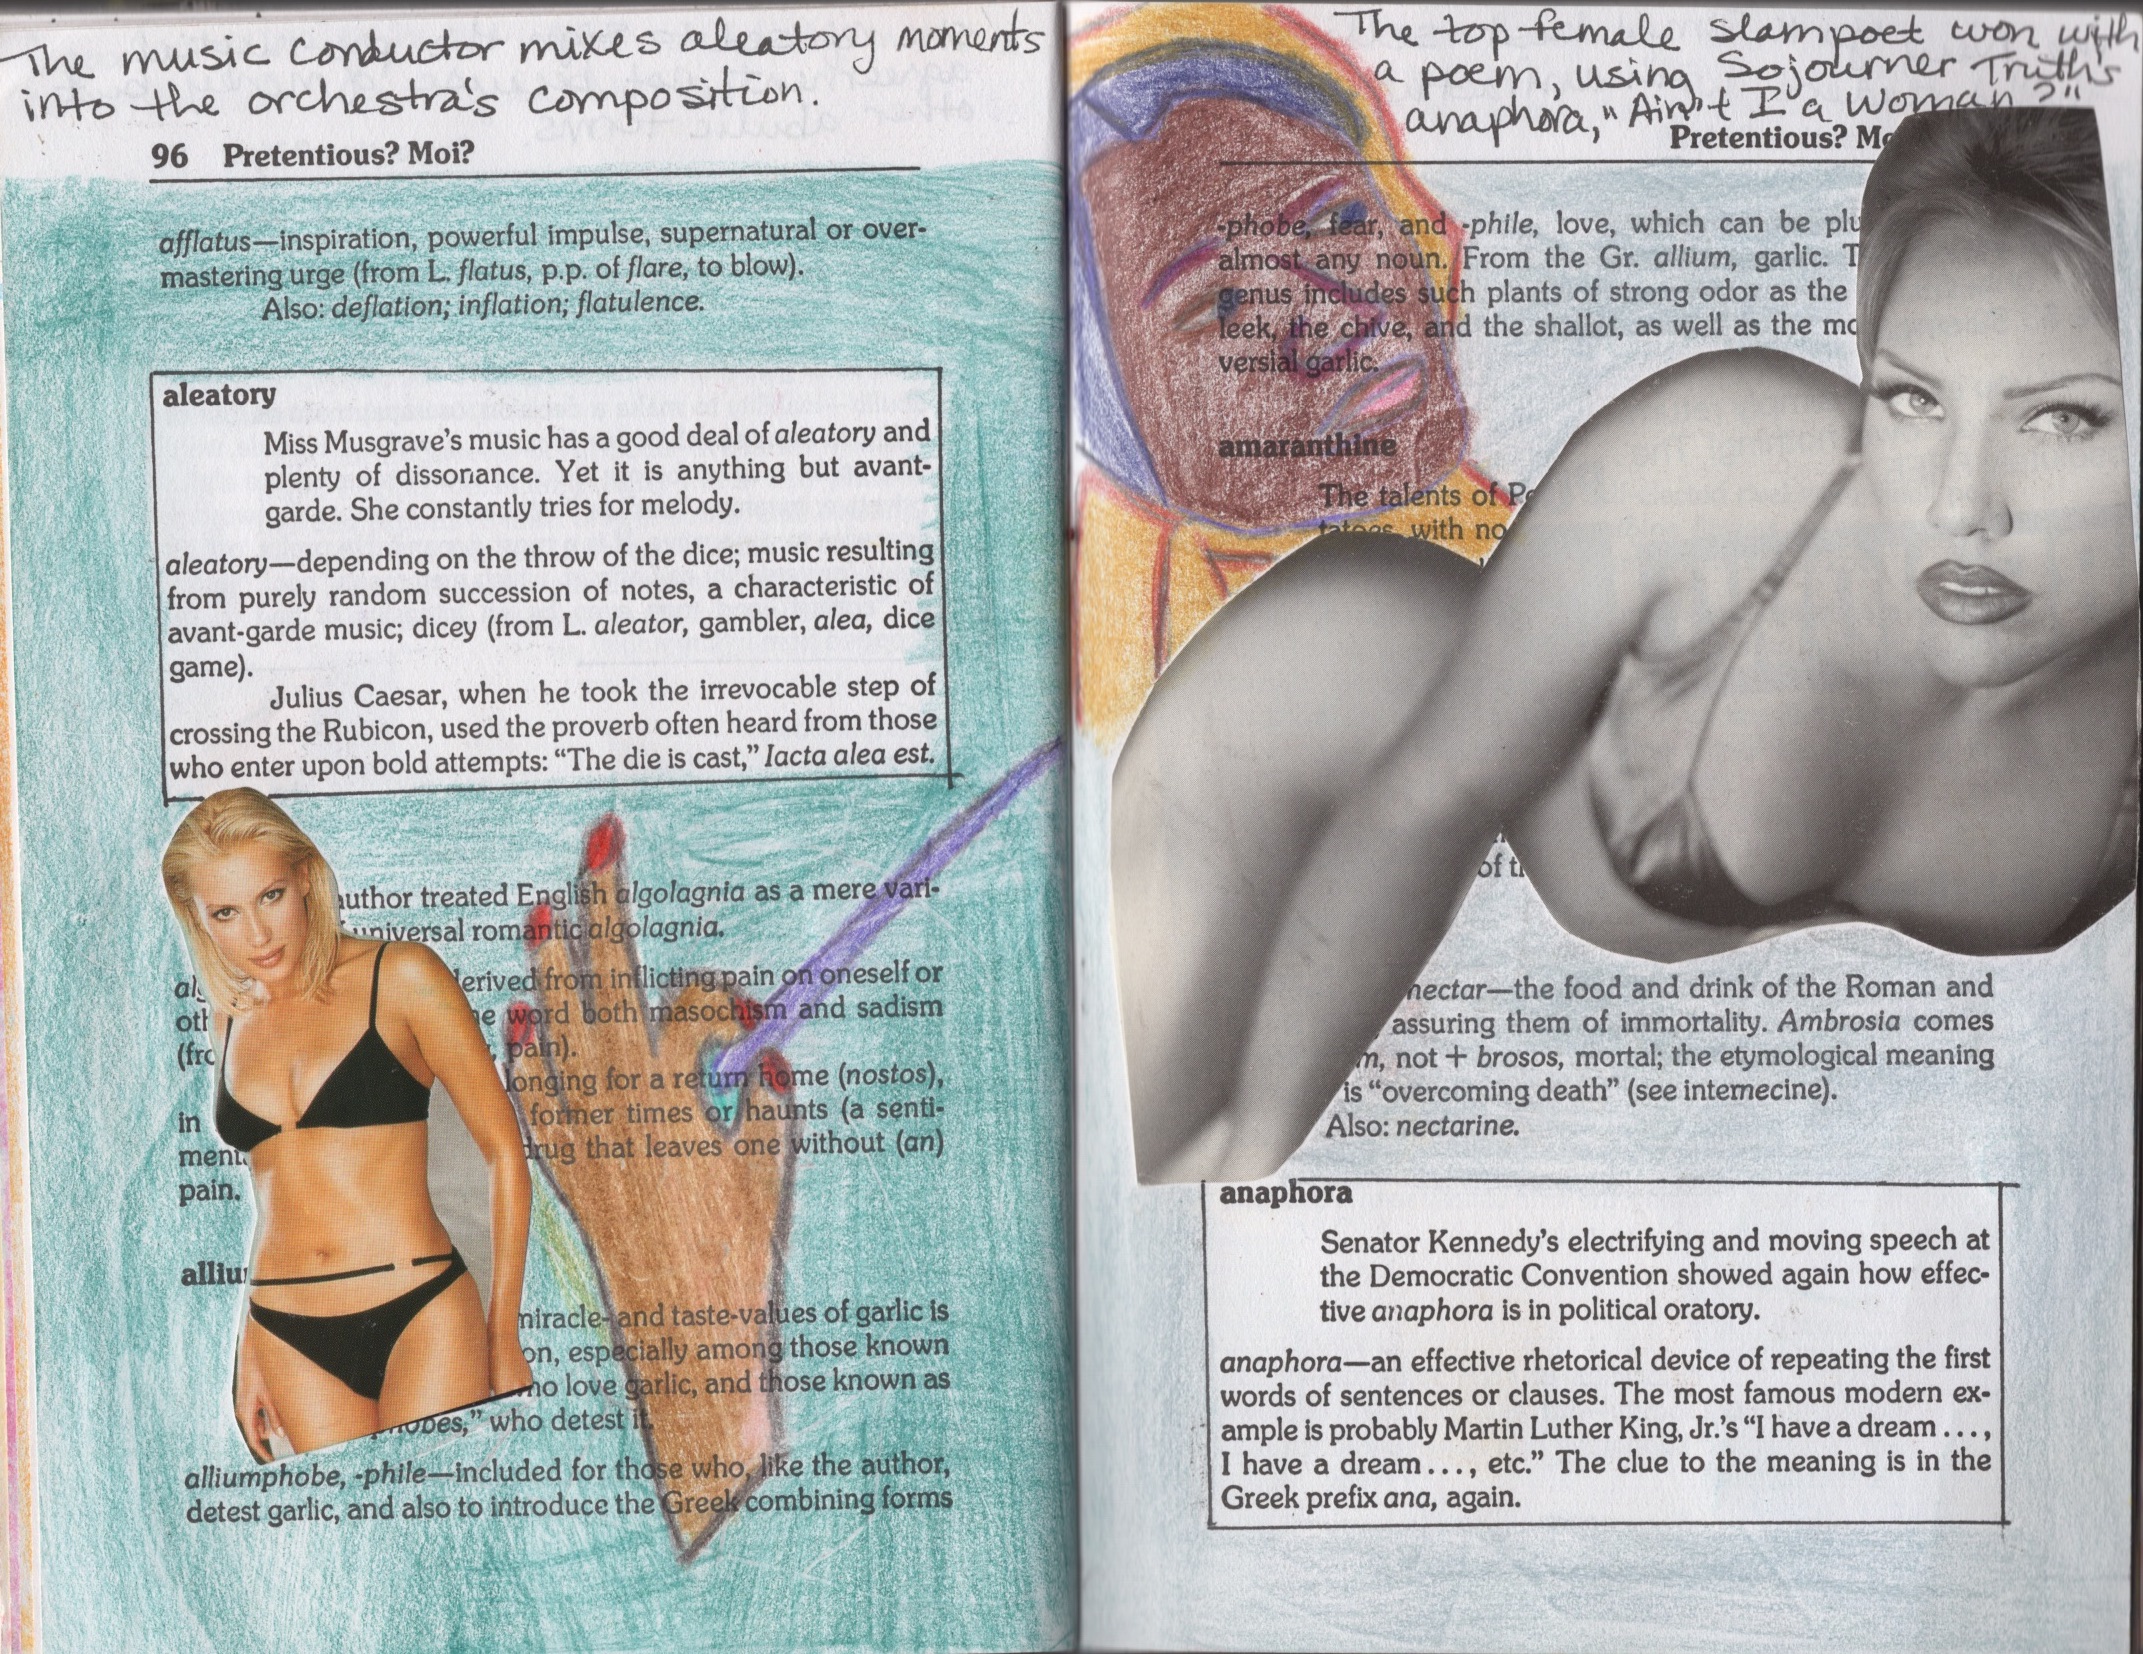 The music conductor mixes aleatory moments
into the orchestra's composition.
96 Pretentious? Moi?
afflatus—inspiration, powerful impulse, supernatural or over-
mastering urge (from L. flatus, p.p. of flare, to blow).
Also: deflation; inflation; flatulence.
aleatory
Miss Musgrave's music has a good deal of aleatory and
plenty of dissonance. Yet it is anything but avant-
garde. She constantly tries for melody.
aleatory—depending on the throw of the dice; music resulting
from purely random succession of notes, a characteristic of
avant-garde music; dicey (from L. aleator, gambler, alea, dice
game).
Julius Caesar, when he took the irrevocable step of
crossing the Rubicon, used the proverb often heard from those
who enter upon bold attempts: “The die is cast,” Iacta alea est.
author treated English algolagnia as a mere vari-
universal romantic algolagnia.
derived from inflicting pain on oneself or
word both masochism and sadism
pain).
longing for a return home (nostos),
in former times or haunts (a senti-
drug that leaves one without (an)
pain.
miracle- and taste-values of garlic is
on, especially among those known
who love garlic, and those known as
who detest it.
alliumphobe, -phile—included for those who, like the author,
detest garlic, and also to introduce the Greek combining forms
The top female slampoet won with
a poem, using Sojourner Truth's
anaphora, "Ain't I a Woman?"
Pretentious?
-phobe, fear, and -phile, love, which can be
almost any noun. From the Gr. allium, garlic.
genus includes such plants of strong odor as the
leek, the chive, and the shallot, as well as the
versial garlic.
amaranthine
The talents of
with no
of
nectar—the food and drink of the Roman and
assuring them of immortality. Ambrosia comes
not + brosos, mortal; the etymological meaning
is “overcoming death” (see internecine).
Also: nectarine.
anaphora
Senator Kennedy's electrifying and moving speech at
the Democratic Convention showed again how effec-
tive anaphora is in political oratory.
anaphora—an effective rhetorical device of repeating the first
words of sentences or clauses. The most famous modern ex-
ample is probably Martin Luther King, Jr.'s “I have a dream . . . ,
I have a dream . . . , etc.” The clue to the meaning is in the
Greek prefix ana, again.